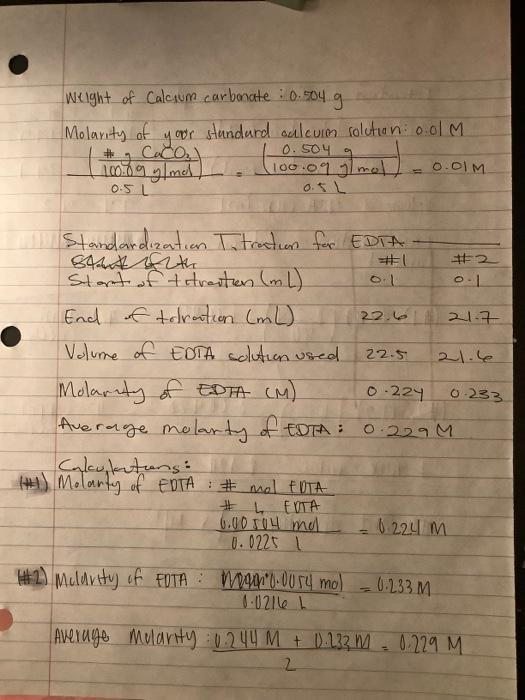 Weight of Calcium carbonate : 0.504 g
Molarity of your standard calcium solution: 0.01 M
(# g CaCO3 / 100.09 g/mol) / 0.5 L = (0.504 g / 100.09 g/mol) / 0.5 L = 0.01 M
Standardization Titration for EDTA
#1 #2
Start of titration (mL) 0.1 0.1
End of titration (mL) 22.6 21.7
Volume of EDTA solution used 22.5 21.6
Molarity of EDTA (M) 0.224 0.233
Average molarity of EDTA: 0.229 M
Calculations:
(#1) Molarity of EDTA : # mol EDTA
# L EDTA
0.00504 mol = 0.224 M
0.0225 l
(#2) Molarity of EDTA : 0.0054 mol = 0.233 M
0.0216 L
Average Molarity : 0.244 M + 0.233 M = 0.229 M
2